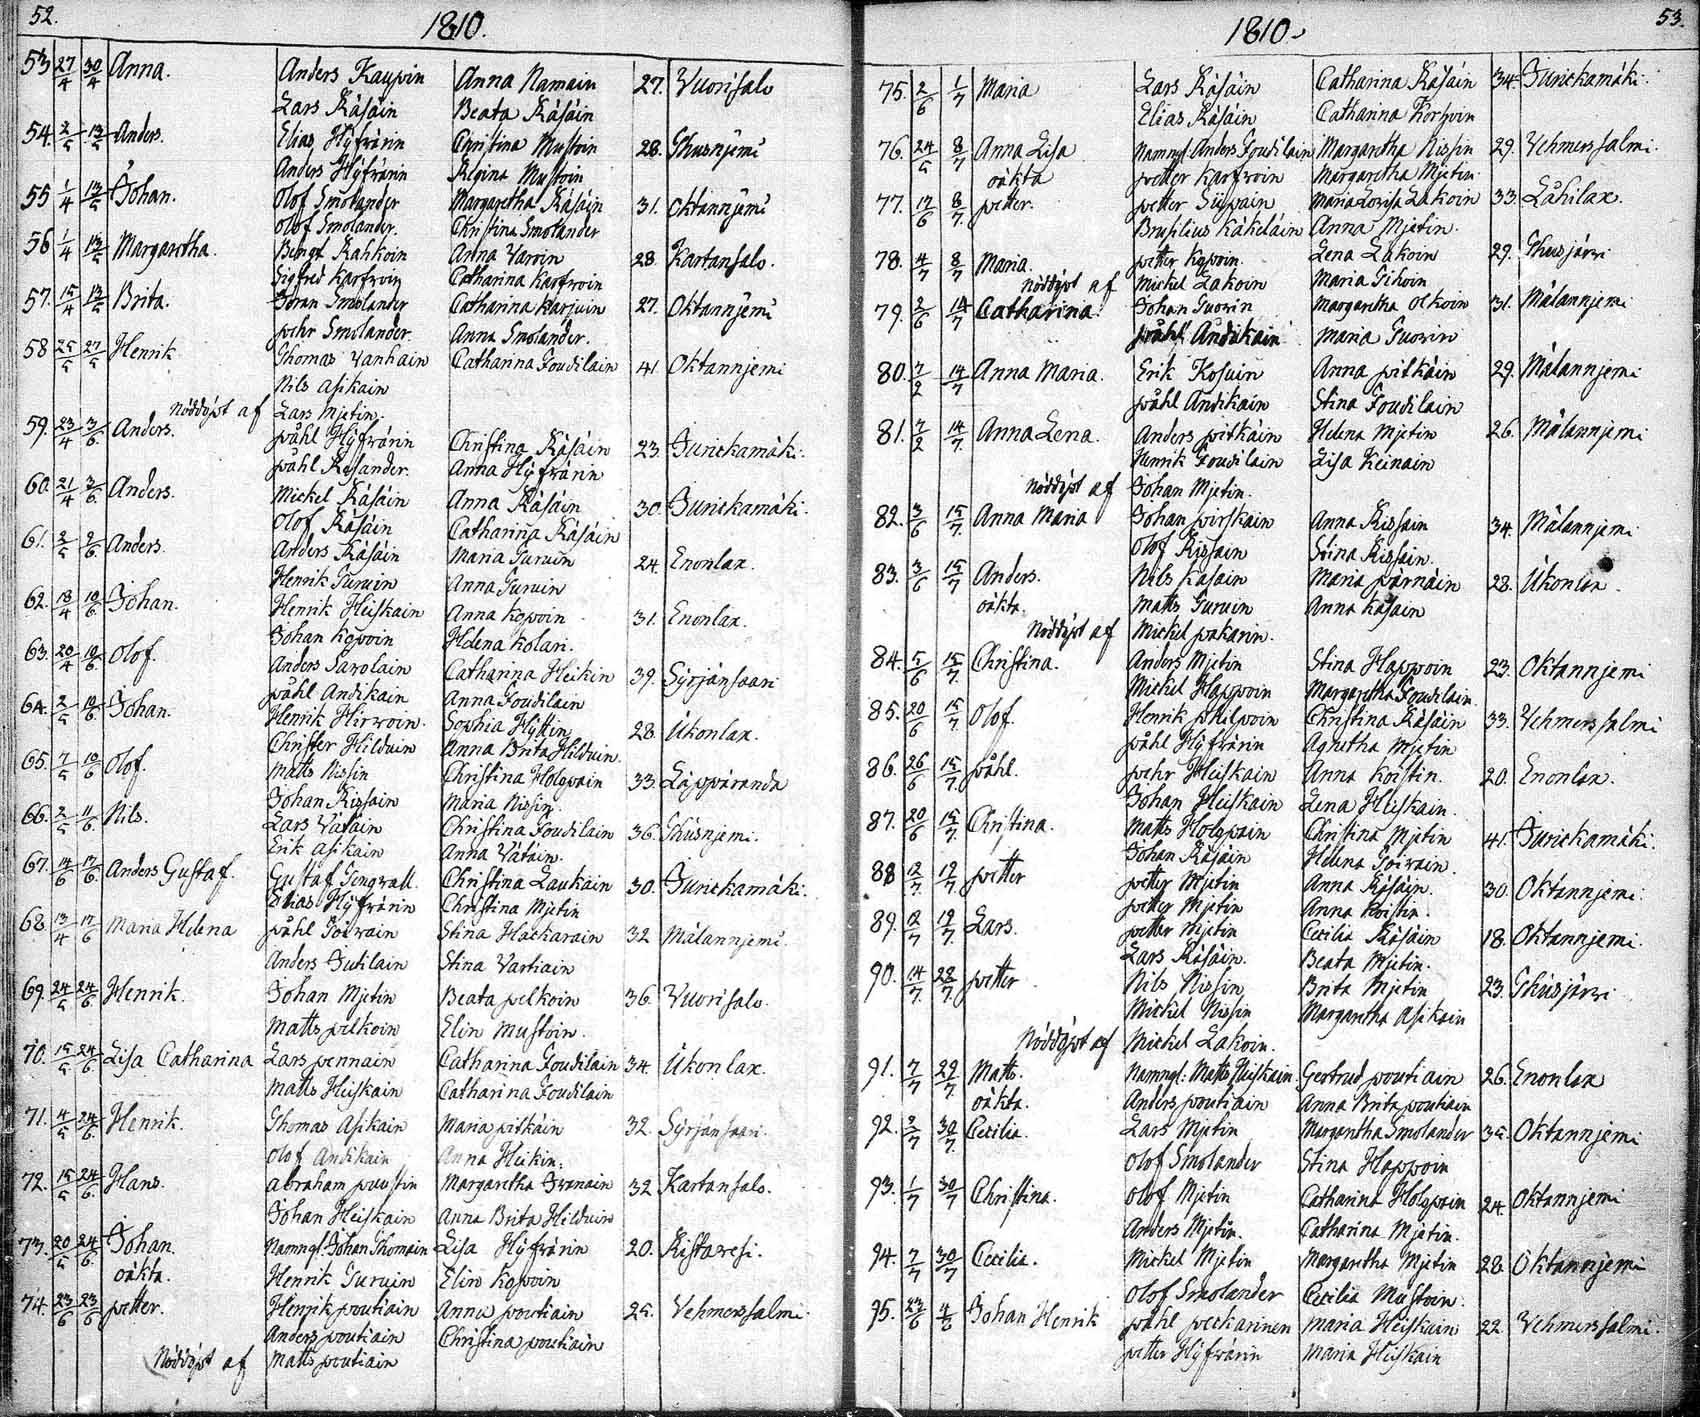 52.
1810.
53 27/4 30/4 Anna. Anders Kaupin Anna Namain 27. Vuorisalo
Lars Räsäin Beata Räsäin
54. 2/5 13/5 Anders. Elias Hyfvärin Christina Mustoin 28. Ihusnjemi
Anders Hyfvärin Regina Mustoin
55 1/4 13/5 Johan. Olof Smolander Margaretha Räsäin 31. Oktannjemi
Olof Smolander. Christina Smolander
56 1/4 13/5 Margaretha. Bengt Rahkoin Anna Varoin 28. Kartansalo.
Sigfred Karfvoin Catharina Karfvoin
57. 15/4 13/5 Brita. Göran Smolander Catharina Karjuin 27. Oktannjemi
pehr Smolander. Anna Smolander.
58 25/5 27/5 Henrik Thomas Vanhain Catharina Foudilain 41 Oktannjemi
Nils Asikain
Nöddöpt af Lars Mjetin.
59. 23/4 3/6 Anders. påhl Hyfvärin Christina Räsäin 23 Jurickamäki.
påhl Resander. Anna Hyfvärin
60 21/4 3/6 Anders. Mickel Räsäin Anna Räsäin 30. Jurickamäki.
Olof Räsäin Catharina Räsäin
61. 2/5 9/6 Anders. Anders Räsäin Maria Turuin 24. Enonlax.
Henrik Turuin Anna Turuin
62. 18/4 10/6 Johan. Henrik Heiskain Anna Kopoin 31. Enonlax.
Johan Kopoin Helena Kolari.
63. 20/4 10/6 Olof. Anders Sarolain Catharina Heikin 39. Syrjänsaari
påhl Andikain Anna Foudilain
64. 2/5 10/6 Johan. Henrik Hirvoin. Sophia Hyttin 28. Ukonlax.
Christer Hilduin Anna Brita Hilduin
65. 7/5 10/6 Olof. Matts Nissin Christina Holopain 33. Läppäranda
Johan Rissain Maria Nissin.
66. 2/5 11/6 Nils. Lars Vätäin Christina Foudilain 36. Ihusnjemi.
Erik Asikain Anna Vätäin.
67. 14/6 17/6 Anders Gustaf. Gustaf Gengvall. Christina Laukain 30. Jurickamäki.
Elias Hyfvärin Christina Mjetin
68. 13/4 17/6 Maria Helena påhl Toivain Stina Hackarain 32 Målannjemi.
Anders Jutilain Stina Vartiain
69. 24/5 24/6 Henrik. Johan Mjetin Beata pelkoin 36. Vuorisalo.
Matts pelkoin Elin Mustoin.
70. 15/5 24/6 Lisa Catharina Lars pennain Catharina Foudilain 34. Ukonlax.
Matts Heiskain Catharina Foudilain
71. 4/5 24/6 Henrik. Thomas Asikain Maria pitkäin 32. Syrjänsaari.
Olof Andikain Anna Heikin.
72. 15/5 24/6 Hans. Abraham puustin Margaretha Ivanain 32 Kartansalo.
Johan Heiskain Anna Brita Hilduin
73. 20/5 24/6 Johan. Namngl. Johan Thomain Lisa Hyfvärin 20. Ristavesi.
oäkta. Henrik Turuin Elin Kopoin
74. 23/6 23/6 petter. Henrik poutiain Anna poutiain 25. Vehmersalmi
Anders poutiain Christina poutiain
Nöddöpt af Matts poutiain
53.
1810.
75. 2/6 1/7 Maria Lars Räsäin Catharina Räsäin 34. Jurickamäki.
Elias Räsäin Catharina Korhoin
76. 24/5 8/7 Anna Lisa Namngl. Anders Foudilain Margaretha Nissin 29. Vehmersalmi.
oäkta petter Karfvoin Margaretha Mjetin
77. 17/6 8/7. petter. petter Siipain Maria Lovisa Lakoin 33. Lähilax.
Bruselius Käkeläin Anna Mjetin.
78. 4/7 8/7 Maria. petter Kopoin. Lena Lakoin 29. Ihusjärvi
Nöddöpt af Mickel Lakoin Maria Tihoin
79. 2/6 14/7 Catharina. Johan Tuorin Margaretha Olkoin 31. Målannjemi
påhl Andikain Maria Tuorin
80. 7/2 14/7 Anna Maria. Erik Kosuin Anna pitkäin 29. Målannjemi
påhl Andikain Stina Foudilain
81. 7/2 14/7. Anna Lena. Anders pitkäin Helena Mjetin 26. Målannjemi
Henrik Foudilain Lisa Keinain
Nöddöpt af Johan Mjetin.
82. 3/6 15/7. Anna Maria Johan pirskain Anna Rissain 34. Målannjemi
Olof Rissain Stina Rissain.
83. 3/6 15/7 Anders. Nils Kasain Maria pärnäin 28. Ukonlax.
oäkta. Matts Turuin Anna Kasain
Nöddöpt af Mickel pakarin.
84. 5/6 15/7. Christina. Anders Mjetin Stina Happoin 23. Oktannjemi
Mickel Happoin Margaretha Foudilain.
85. 20/6 15/7 Olof. Henrik philpoin Christina Räsäin 33. Vehmersalmi
påhl Hyfvärin Agnetha Mjetin
86. 26/6 15/7. påhl. pehr Heiskain Anna Koistin. 20. Enonlax.
Johan Heiskain Lena Heiskain.
87. 20/6 15/7. Christina. Matts Holopain Christina Mjetin 41. Jurickamäki.
Johan Räsäin Helena Toivain.
88 12/7. 19/7. petter petter Mjetin Anna Räsäin. 30. Oktannjemi.
petter Mjetin Anna Koistin.
89. 12/7 19/7. Lars. petter Mjetin Cecilia Räsäin 18. Oktannjemi.
Lars Räsäin. Beata Mjetin.
90. 14/7. 22/7. petter Nils Nissin Brita Mjetin 23. Ihusjärvi
Mickel Nissin Margaretha Asikain
Nöddöpt af Mickel Lakoin.
91. 7/7 29/7. Matts. Namngl: Matts Heiskain. Gertrud poutiain 26. Enonlax
oäkta. Anders poutiain Anna Brita poutiain
92. 2/7 30/7. Cecilia. Lars Mjetin Margaretha Smolander 35. Oktannjemi
Olof Smolander Stina Happoin
93. 1/7 30/7 Christina. Olof Mjetin Catharina Holopain 24. Oktannjemi
Anders Mjetin. Catharina Mjetin.
94. 7/7 30/7 Cecilia. Mickel Mjetin Margaretha Mjetin 28 Oktannjemi
Olof Smolander Cecilia Mustoin.
95. 23/6 4/8 Johan Henrik påhl peckarinen Maria Heiskain 22 Vehmersalmi.
petter Hyfvärin Maria Heiskain